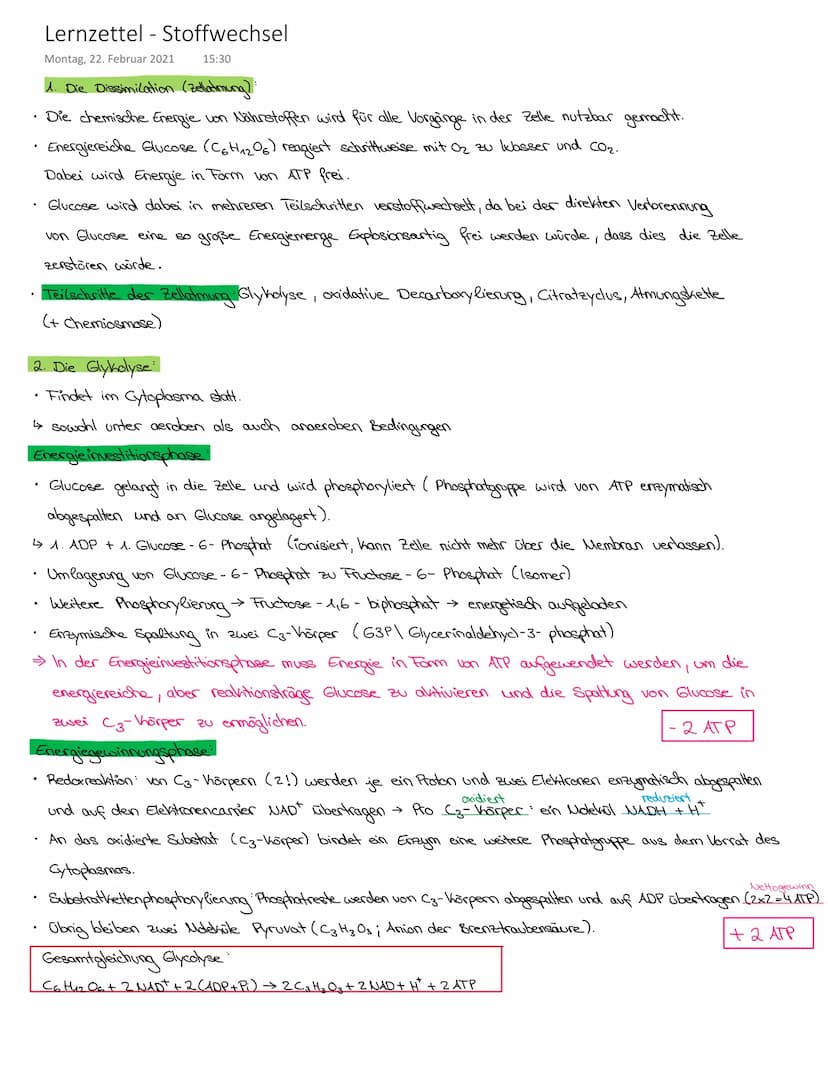 Lernzettel - Stoffwechsel
Montag, 22. Februar 2021 15:30
1. Die Dissimilation (Zellatmung):
• Die chemische Energie von Nährstoffen wird für alle Vorgänge in der Zelle nutzbar gemacht.
• Energiereiche Glucose (C₆H₁₂O₆) reagiert schrittweise mit O₂ zu Wasser und CO₂.
Dabei wird Energie in Form von ATP frei.
• Glucose wird dabei in mehreren Teilschritten verstoffwechselt, da bei der direkten Verbrennung
von Glucose eine so große Energiemenge Explosionsartig frei werden würde, dass dies die Zelle
zerstören würde.
• Teilschritte der Zellatmung: Glykolyse, oxidative Decarboxylierung, Citratzyclus, Atmungskette
(+ Chemiosmose)
2. Die Glykolyse:
• Findet im Cytoplasma statt.
↳ sowohl unter aeroben als auch anaeroben Bedingungen
Energieinvestitionsphase:
• Glucose gelangt in die Zelle und wird phosphoryliert (Phosphatgruppe wird von ATP enzymatisch
abgespalten und an Glucose angelagert).
↳ 1. ADP + 1. Glucose-6-Phosphat (ionisiert, kann Zelle nicht mehr über die Membran verlassen).
• Umlagerung von Glucose-6-Phosphat zu Fructose-6-Phosphat (Isomer)
• Weitere Phosphorylierung → Fructose-1,6-biphosphat → energetisch aufgeladen
• Enzymische Spaltung in zwei C₃-Körper (G3P\ Glycerinaldehyd-3-phosphat)
⇒ In der Energieinvestitionsphase muss Energie in Form von ATP aufgewendet werden, um die
energiereiche, aber reaktionsträge Glucose zu aktivieren und die Spaltung von Glucose in
zwei C₃-Körper zu ermöglichen.
- 2 ATP
Energiegewinnungsphase:
• Redoxreaktion: von C₃-Körpern (2!) werden je ein Proton und zwei Elektronen enzymatisch abgespalten
oxidiert reduziert
und auf den Elektronencarrier NAD⁺ übertragen → Pro C₃-Körper: ein Molekül NADH + H⁺
• An das oxidierte Substrat (C₃-Körper) bindet ein Enzym eine weitere Phosphatgruppe aus dem Vorrat des
Cytoplasmas.
Nettogewinn
• Substratkettenphosphorylierung: Phosphatreste werden von C₃-Körpern abgespalten und auf ADP übertragen (2x2=4 ATP)
• Übrig bleiben zwei Moleküle Pyruvat (C₃H₃O₃; Anion der Brenztraubensäure).
+ 2 ATP
Gesamtgleichung Glycolyse:
C₆H₁₂O₆ + 2 NAD⁺ + 2(ADP+Pi) → 2 C₃H₃O₃ + 2 NAD + H⁺ + 2 ATP